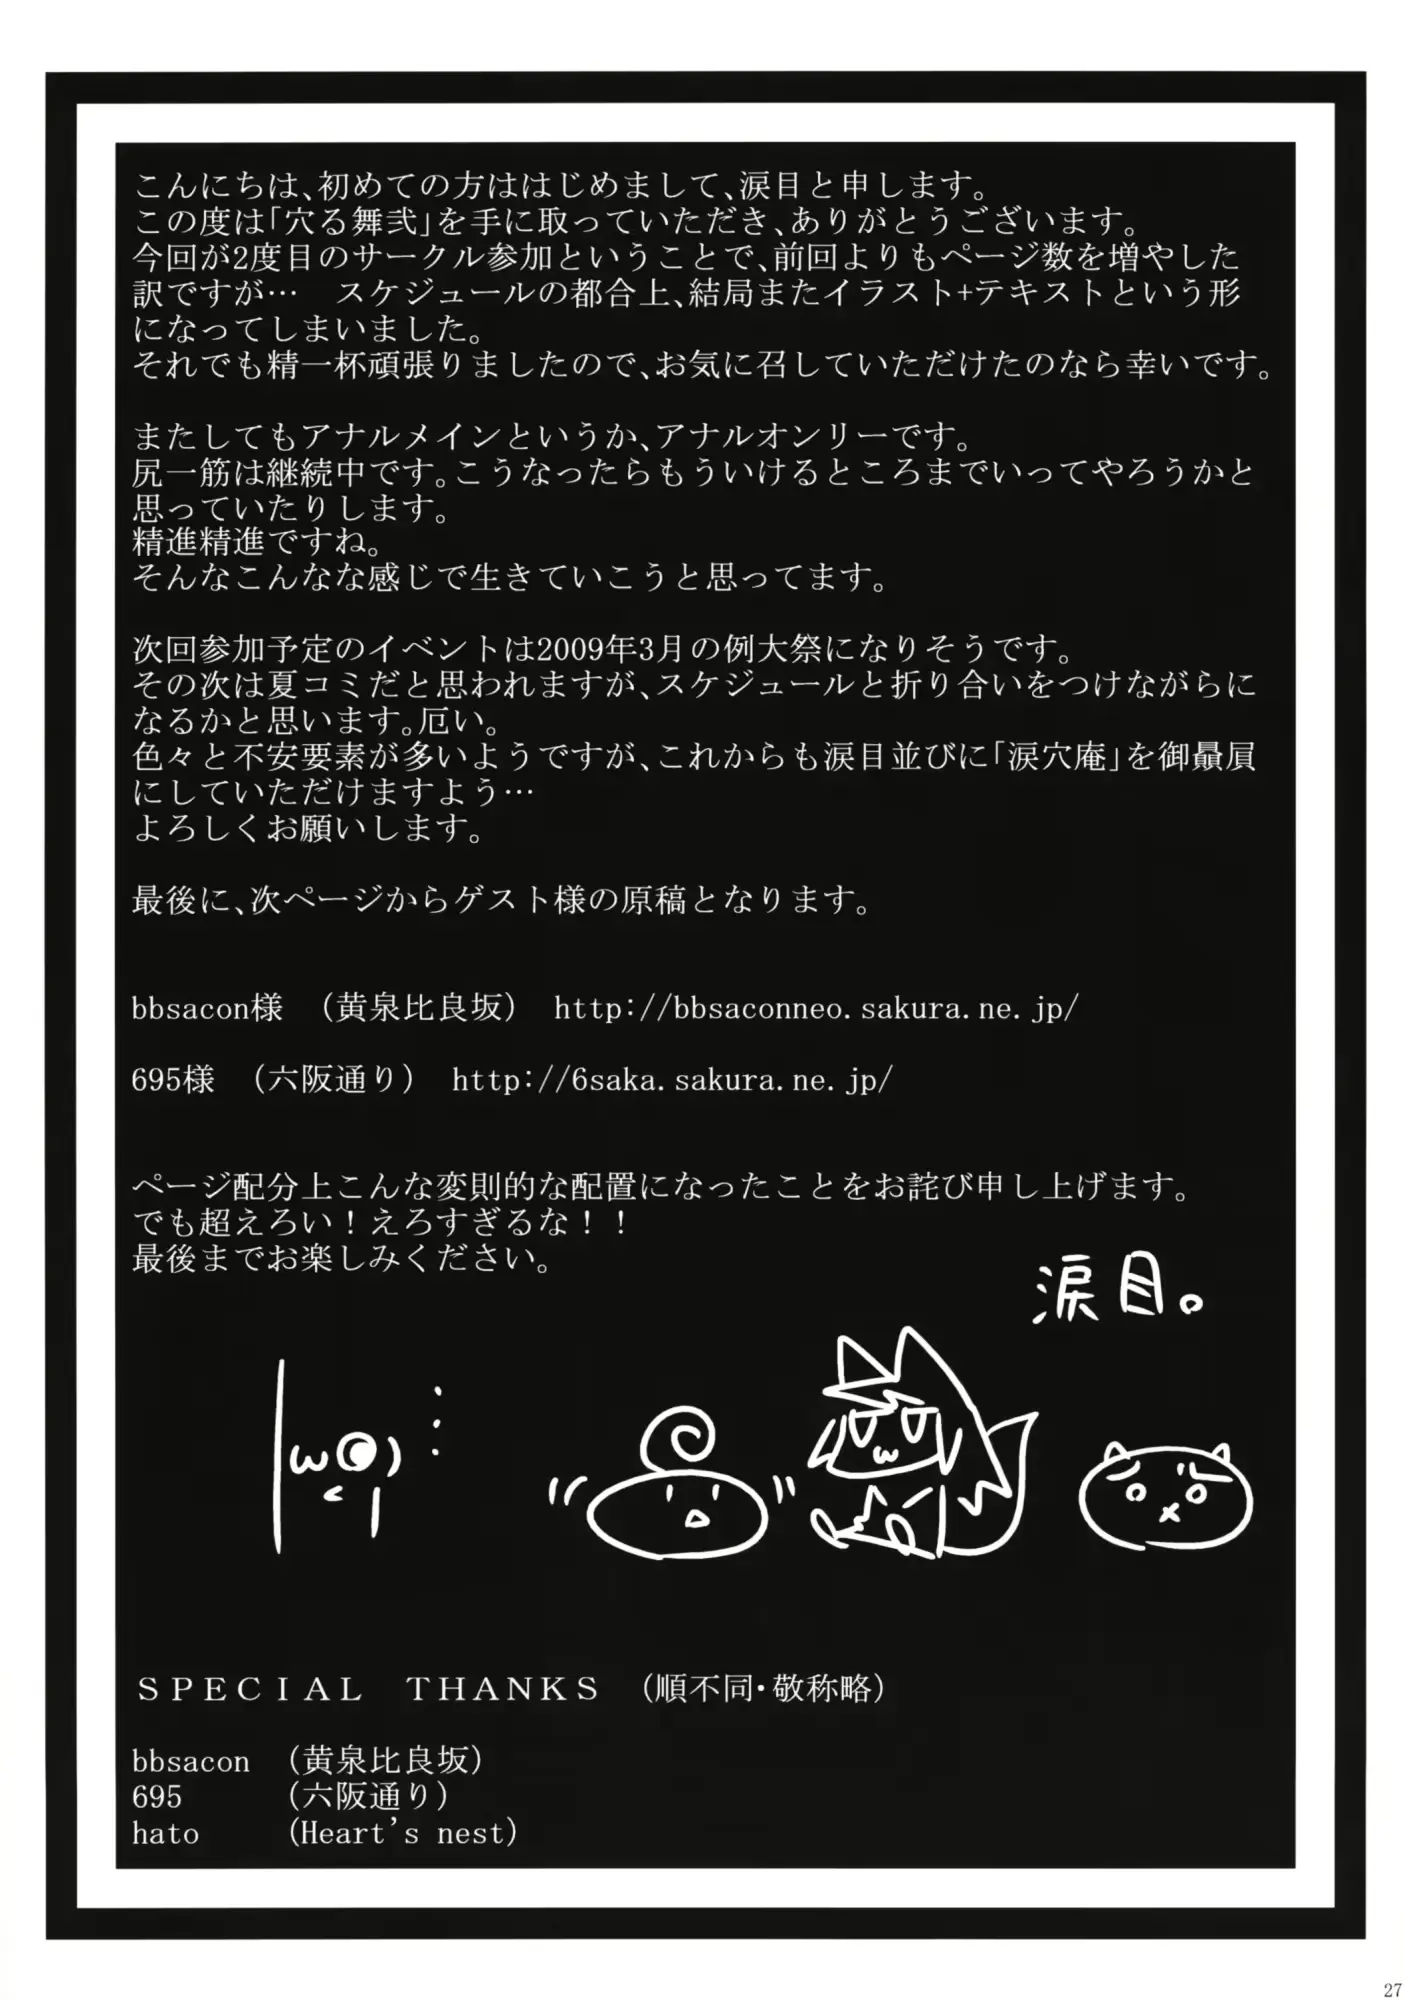 こんにちは、初めての方ははじめまして、涙目と申します。
この度は「穴る舞弐」を手に取っていただき、ありがとうございます。
今回が2度目のサークル参加ということで、前回よりもページ数を増やした
訳ですが…　スケジュールの都合上、結局またイラスト+テキストという形
になってしまいました。
それでも精一杯頑張りましたので、お気に召していただけたのなら幸いです。
またしてもアナルメインというか、アナルオンリーです。
尻一筋は継続中です。こうなったらもういけるところまでいってやろうかと
思っていたりします。
精進精進ですね。
そんなこんなな感じで生きていこうと思ってます。
次回参加予定のイベントは2009年3月の例大祭になりそうです。
その次は夏コミだと思われますが、スケジュールと折り合いをつけながらに
なるかと思います。厄い。
色々と不安要素が多いようですが、これからも涙目並びに「涙穴庵」を御贔屓
にしていただけますよう…
よろしくお願いします。
最後に、次ページからゲスト様の原稿となります。
bbsacon様　（黄泉比良坂）　http://bbsaconneo.sakura.ne.jp/
695様　（六阪通り）　http://6saka.sakura.ne.jp/
ページ配分上こんな変則的な配置になったことをお詫び申し上げます。
でも超えろい！えろすぎるな！！
最後までお楽しみください。
涙目。
ＳＰＥＣＩＡＬ　ＴＨＡＮＫＳ　（順不同・敬称略）
bbsacon　（黄泉比良坂）
695　（六阪通り）
hato　（Heart's nest）
27